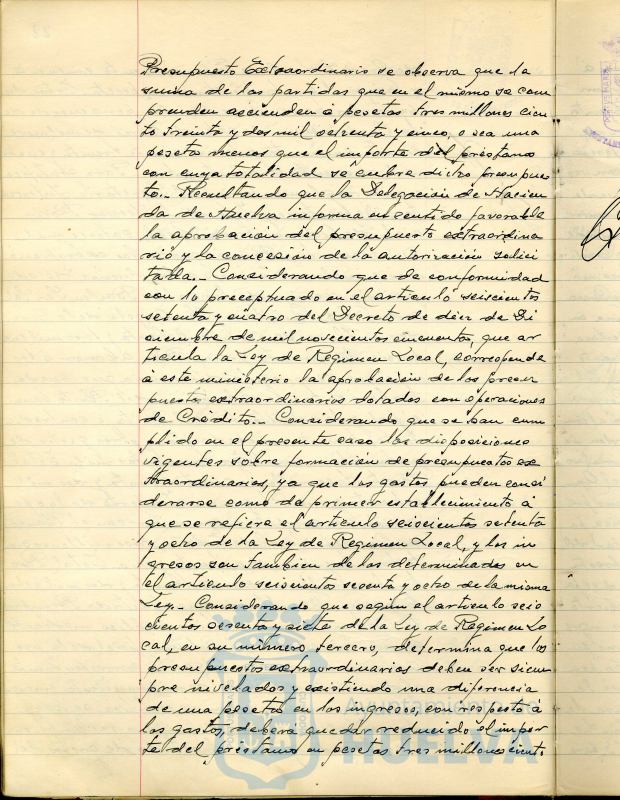 Presupuesto Extraordinario se observa que la
suma de las partidas que en el mismo se com
prenden ascienden á pesetas tres millones cien
to treinta y dos mil setenta y cinco, o sea una
peseta menos que el importe del préstamo
con cuya totalidad se cubre dicho presupues
to.- Resultando que la Delegación de Hacien
da de Huelva informa en sentido favorable
la aprobación del presupuesto extraordina
rio y la concesión de la autorización solici
tada.- Considerando que de conformidad
con lo preceptuado en el artículo seiscientos
setenta y cuatro del Decreto de diez de Di
ciembre de mil novecientos cincuenta, que ar
ticula la Ley de Regimen Local, corresponde
á este ministerio la aprobación de los presu
puestos extraordinarios dotados con operaciones
de Crédito.- Considerando que se han cum
plido en el presente caso las disposiciones
vigentes sobre formación de presupuestos ex
traordinarios, ya que los gastos pueden consi
derarse como de primer establecimiento á
que se refiere el artículo seiscientos setenta
y ocho de la Ley de Regimen Local, y los in
gresos son tambien de los determinados en
el artículo seiscientos setenta y ocho de la misma
Ley.- Considerando que según el artículo seis
cientos setenta y siete de la Ley de Regimen Lo
cal, en su número tercero, determina que los
presupuestos extraordinarios deben ser siem
pre nivelados y existiendo una diferencia
de una peseta en los ingresos, con respecto á
los gastos, deberá quedar reducido el impor
te del préstamo en pesetas tres millones ciento
HUELVA